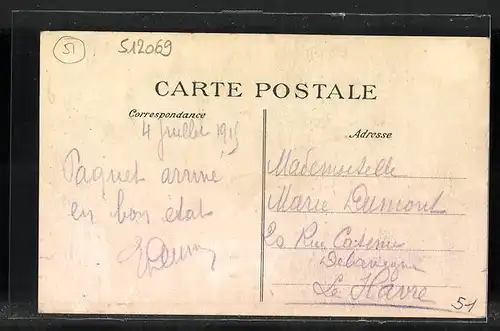 51
512069
CARTE POSTALE
Correspondance
Adresse
4 Juillet 1915
Paquet arrivé
en bon état
Mademoiselle
Marie Dumont
20 Rue Casimir
Delavigne
Le Havre
51